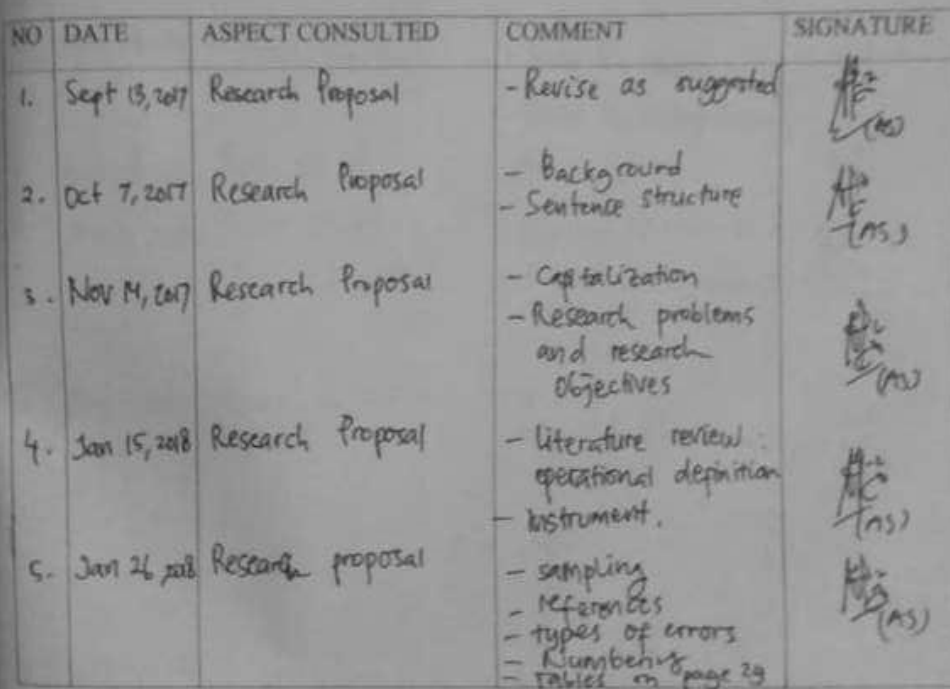 NO DATE ASPECT CONSULTED COMMENT SIGNATURE
1. Sept 13, 2017 Research Proposal - Revise as suggested (AS)
2. Oct 7, 2017 Research Proposal - Background
- Sentence structure (AS)
3. Nov 2017 Research Proposal - Capitalization
- Research problems
and research
Objectives (AS)
4. Jan 15, 2018 Research Proposal - literature review :
operational definition
- Instrument. (AS)
5. Jan 26, 2018 Research proposal - sampling
- references
- types of errors (AS)
- Numbering
- Tables on page 29